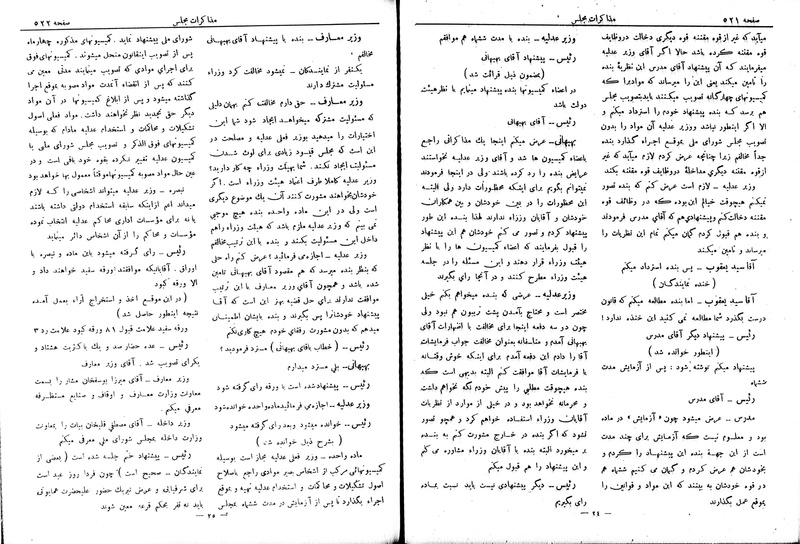 صفحه ۵۲۱
مذاکرات مجلس
میآید که غیر از قوه مقننه قوه دیگری دخالت در وظایف
قوه مقننه کرده باشد حالا اگر آقای وزیر عدلیه
میفرمایند که آن پیشنهاد آقای مدرس این نظریهٔ بنده
را تأمین میکند یعنی این را میرساند که مواد را که
کمیسیونهای چهارگانه تصویب میکنند باید بتصویب مجلس
هم برسد که بنده پیشنهاد خودم را استرداد میکنم و
الا اگر اینطور نباشد و وزیر عدلیه آن مواد را بدون
تصویب مجلس شورای ملی بموقع اجراء گذارد بنده
جداً مخالفم زیرا چنانچه عرض کردم لازم میآید که غیر
از قوه مقننه دیگری مداخله در وظایف قوه مقننه بکند
وزیر عدلیه - لازم است عرض کنم که بنده تصور
نمیکنم هیچوقت خیالم این بوده که در وظائف قوه
مقننه دخالت کنم و پیشنهادی هم که آقای مدرس فرمودند
و بنده هم قبول کردم گمان میکنم تمام این نظریات را
میرساند و تأمین میکند
آقا سید یعقوب - پس بنده استرداد میکنم
(خنده نمایندگان)
آقا سید یعقوب - اما بنده مطالعه میکنم که قانون
درست بگذرد شما مطالعه نمی کنید این خنده ندارد؛
رئیس - پیشنهاد دیگر آقای مدرس
(اینطور خوانده شد)
پیشنهاد میکنم نوشته شود: پس از آزمایش مدت
ششماه
رئیس - آقای مدرس
مدرس - عرض میشود چون «آزمایش» در ماده
بود و معلوم نیست که آزمایش برای چند مدت
است از این جهت بنده این پیشنهاد را کردم و
بخودشان هم عرض کردم و گمان می کنیم ششماه هم
خودشان هم پیشنهاد به بینند که این مواد و قوانین را
بموقع عمل بگذارند
وزیر عدلیه - بنده با پیشنهاد ششماه هم موافقم
رئیس - پیشنهاد آقای بهبهانی
(بمضمون ذیل قرائت شد)
در اعضاء کمیسیونها بنده پیشنهاد مینمایم با نظر هیئت
دولت باشد
رئیس - آقای بهبهانی
بهبهانی - عرض میکنم اینجا یک مذاکراتی راجع
باعضاء کمیسیون ها شد و آقای وزیر عدلیه نخواستند
عرایض بنده را رد کرده باشند ولی در اینجا فرمودند
نمیتوانم بگویم برای اینکه محظورات دارد ولی البته
این محظورات را در بین خودشان و بین همکاران
خودشان و آقایان وزراء ندارند لهذا بنده این طور
پیشنهاد کردم و تصور می کنم خودشان هم این پیشنهاد
را قبول بفرمایند که اعضاء کمیسیون ها را با نظر
هیئت وزراء قرار دهند و این مسئله را در جلسه
هیئت وزراء مطرح کنند و در آنجا رأی بگیرند
وزیر عدلیه - عرضی که بنده میخواهم بکنم خیلی
مختصر است و محتاج بآمدن پشت تریبون هم نبود ولی
چون دو سه دفعه اینجا برای مخالفت با اظهارات آقای
بهبهانی آمدم و متأسفانه بعنوان مخالفت جواب فرمایشات
آقا را دادم این دفعه آمدم برای اینکه خوش وقتانه
با فرمایشات آقا موافقت کنم البته بدیهی است که
بنده هیچوقت مطلبی را پیش خودم نگاه نخواهم داشت
و محرمانه نخواهد بود و در خیلی از موارد از نظریات
آقایان وزراء استفاده خواهم کرد و همچو تصور
نشود که اگر بنده در خارج مشورت کنم به بنده
بر میخورد البته بنده با آقایان وزراء مشاوره می کنم
و این پیشنهاد را هم قبول میکنم
رئیس - دیگر پیشنهادی نیست باید نسبت بماده
رأی بگیریم
- ۲۴ -
مذاکرات مجلس
صفحه ۵۲۲
وزیر معارف - بنده با پیشنهاد آقای بهبهانی
مخالفم
یکنفر از نمایندگان - نمیشود مخالفت کرد وزراء
مسئولیت مشترک دارند
وزیر معارف - حق دارم مخالفت کنم بهمان دلیلی
که مسئولیت مشترکه میخواهد ایجاد شود شما این
اختیارات را میدهید بوزیر فعلی عدلیه و مصلحت در
این است که مجلس قیود زیادی برای لوث شدن
مسئولیت ایجاد نکند. شما بهیئت وزراء چه کار دارید؟
وزیر عدلیه کاملا طرف اعتماد هیئت وزراء است. اگر
خودشان بخواهند مشورت کنند آن یک موضوع دیگری
است ولی در این ماده واحده بنده هیچ موجبی
نمی بینم که وزیر عدلیه ملزم باشد که هیئت وزراء را هم
داخل این مسئولیت بکنند و بنده با این ترتیب مخالفم
وزیر عدلیه - اجازه می فرمائید؛ عرض کنم راه حلی
که بنظر بنده میرسد که هم مقصود آقای بهبهانی تأمین
شده باشد و همچون آقای وزیر معارف با این ترتیب
موافقت ندارند برای حل قضیه بهتر این است که آقا
پیشنهاد خودشان را پس بگیرند و بنده بایشان اطمینان
میدهم که بدون مشورت رفقای خودم هیچ کاری نکنم
رئیس - (خطاب بآقای بهبهانی) مسترد فرمودید؟
بهبهانی - بلی مسترد میدارم
رئیس - پیشنهاد شده است که با ورقه رأی گرفته شود
وزیر عدلیه - اجازه می فرمائید ماده واحده خوانده شود
رئیس - خوانده میشود و بعد رأی گرفته میشود
(بشرح ذیل خوانده شد)
ماده واحده - وزیر فعلی عدلیه مجاز است بوسیله
کمیسیونهائی مرکب از اشخاص بصیر موادی راجع باصلاح
اصول تشکیلات و محاکمات و استخدام عدلیه تهیه و بموقع
اجراء بگذارد تا پس از آزمایش در مدت ششماه بمجلس
شورای ملی پیشنهاد نماید. کمیسیونهای مذکوره چهارماه
پس از تصویب اینقانون منحل میشوند. کمیسیونهای فوق
برای اجرای موادی که تصویب مینمایند مدتی معین می
کنند که پس از انقضاء آنمدت مواد مصوبه بموقع اجرا
گذاشته میشود و پس از ابلاغ کمیسیونها در آن مواد
دیگر حق تجدید نظر نخواهند داشت. مواد فعلی اصول
تشکیلات و محاکمات و استخدام عدلیه مادام که بوسیله
کمیسیونهای فوق الذکر و تصویب مجلس شورای ملی یا
کمیسیون عدلیه تغییر نکرده بقوه خود باقی است و در
عین حال مواد مصوبه کمیسیونها موقتاً معمول بها خواهد بود
تبصره - وزیر عدلیه میتواند اشخاصی را که لازم
میداند اعم از اینکه سابقه استخدام دولتی داشته باشند
یا نه برای مؤسسات اداری محاکم عدلیه انتخاب نموده
مؤسسات و محاکم را از آن اشخاص دائر مینماید
رئیس - رأی گرفته میشود باین ماده و تبصره با
اوراق. آقایانیکه موافقند ورقه سفید خواهند داد و
الا ورقه کبود
(در این موقع اخذ و استخراج آراء بعمل آمده
نتیجه اینطور حاصل شد)
ورقه سفید علامت قبول ۸۱ ورقه کبود علامت رد ۳
رئیس - عده حضار صد و یک با اکثریت هشتاد و
یک رأی تصویب شد. آقای وزیر معارف
وزیر معارف - آقای میرزا یوسفخان مشار را بسمت
معاونت وزارت معارف و اوقاف و صنایع مستظرفه
معرفی میکنم.
وزیر داخله - آقای مصطفی قلیخان بیات را بمعاونت
وزارت داخله بمجلس شورای ملی معرفی میکنم
رئیس - پیشنهاد ختم جلسه شده است (بعضی از
نمایندگان - صحیح است) چون فردا روز عید است
برای شرفیابی و عرض تبریک حضور علیحضرت همایونی
باید نه نفر بحکم قرعه معین شوند
- ۲۵ -